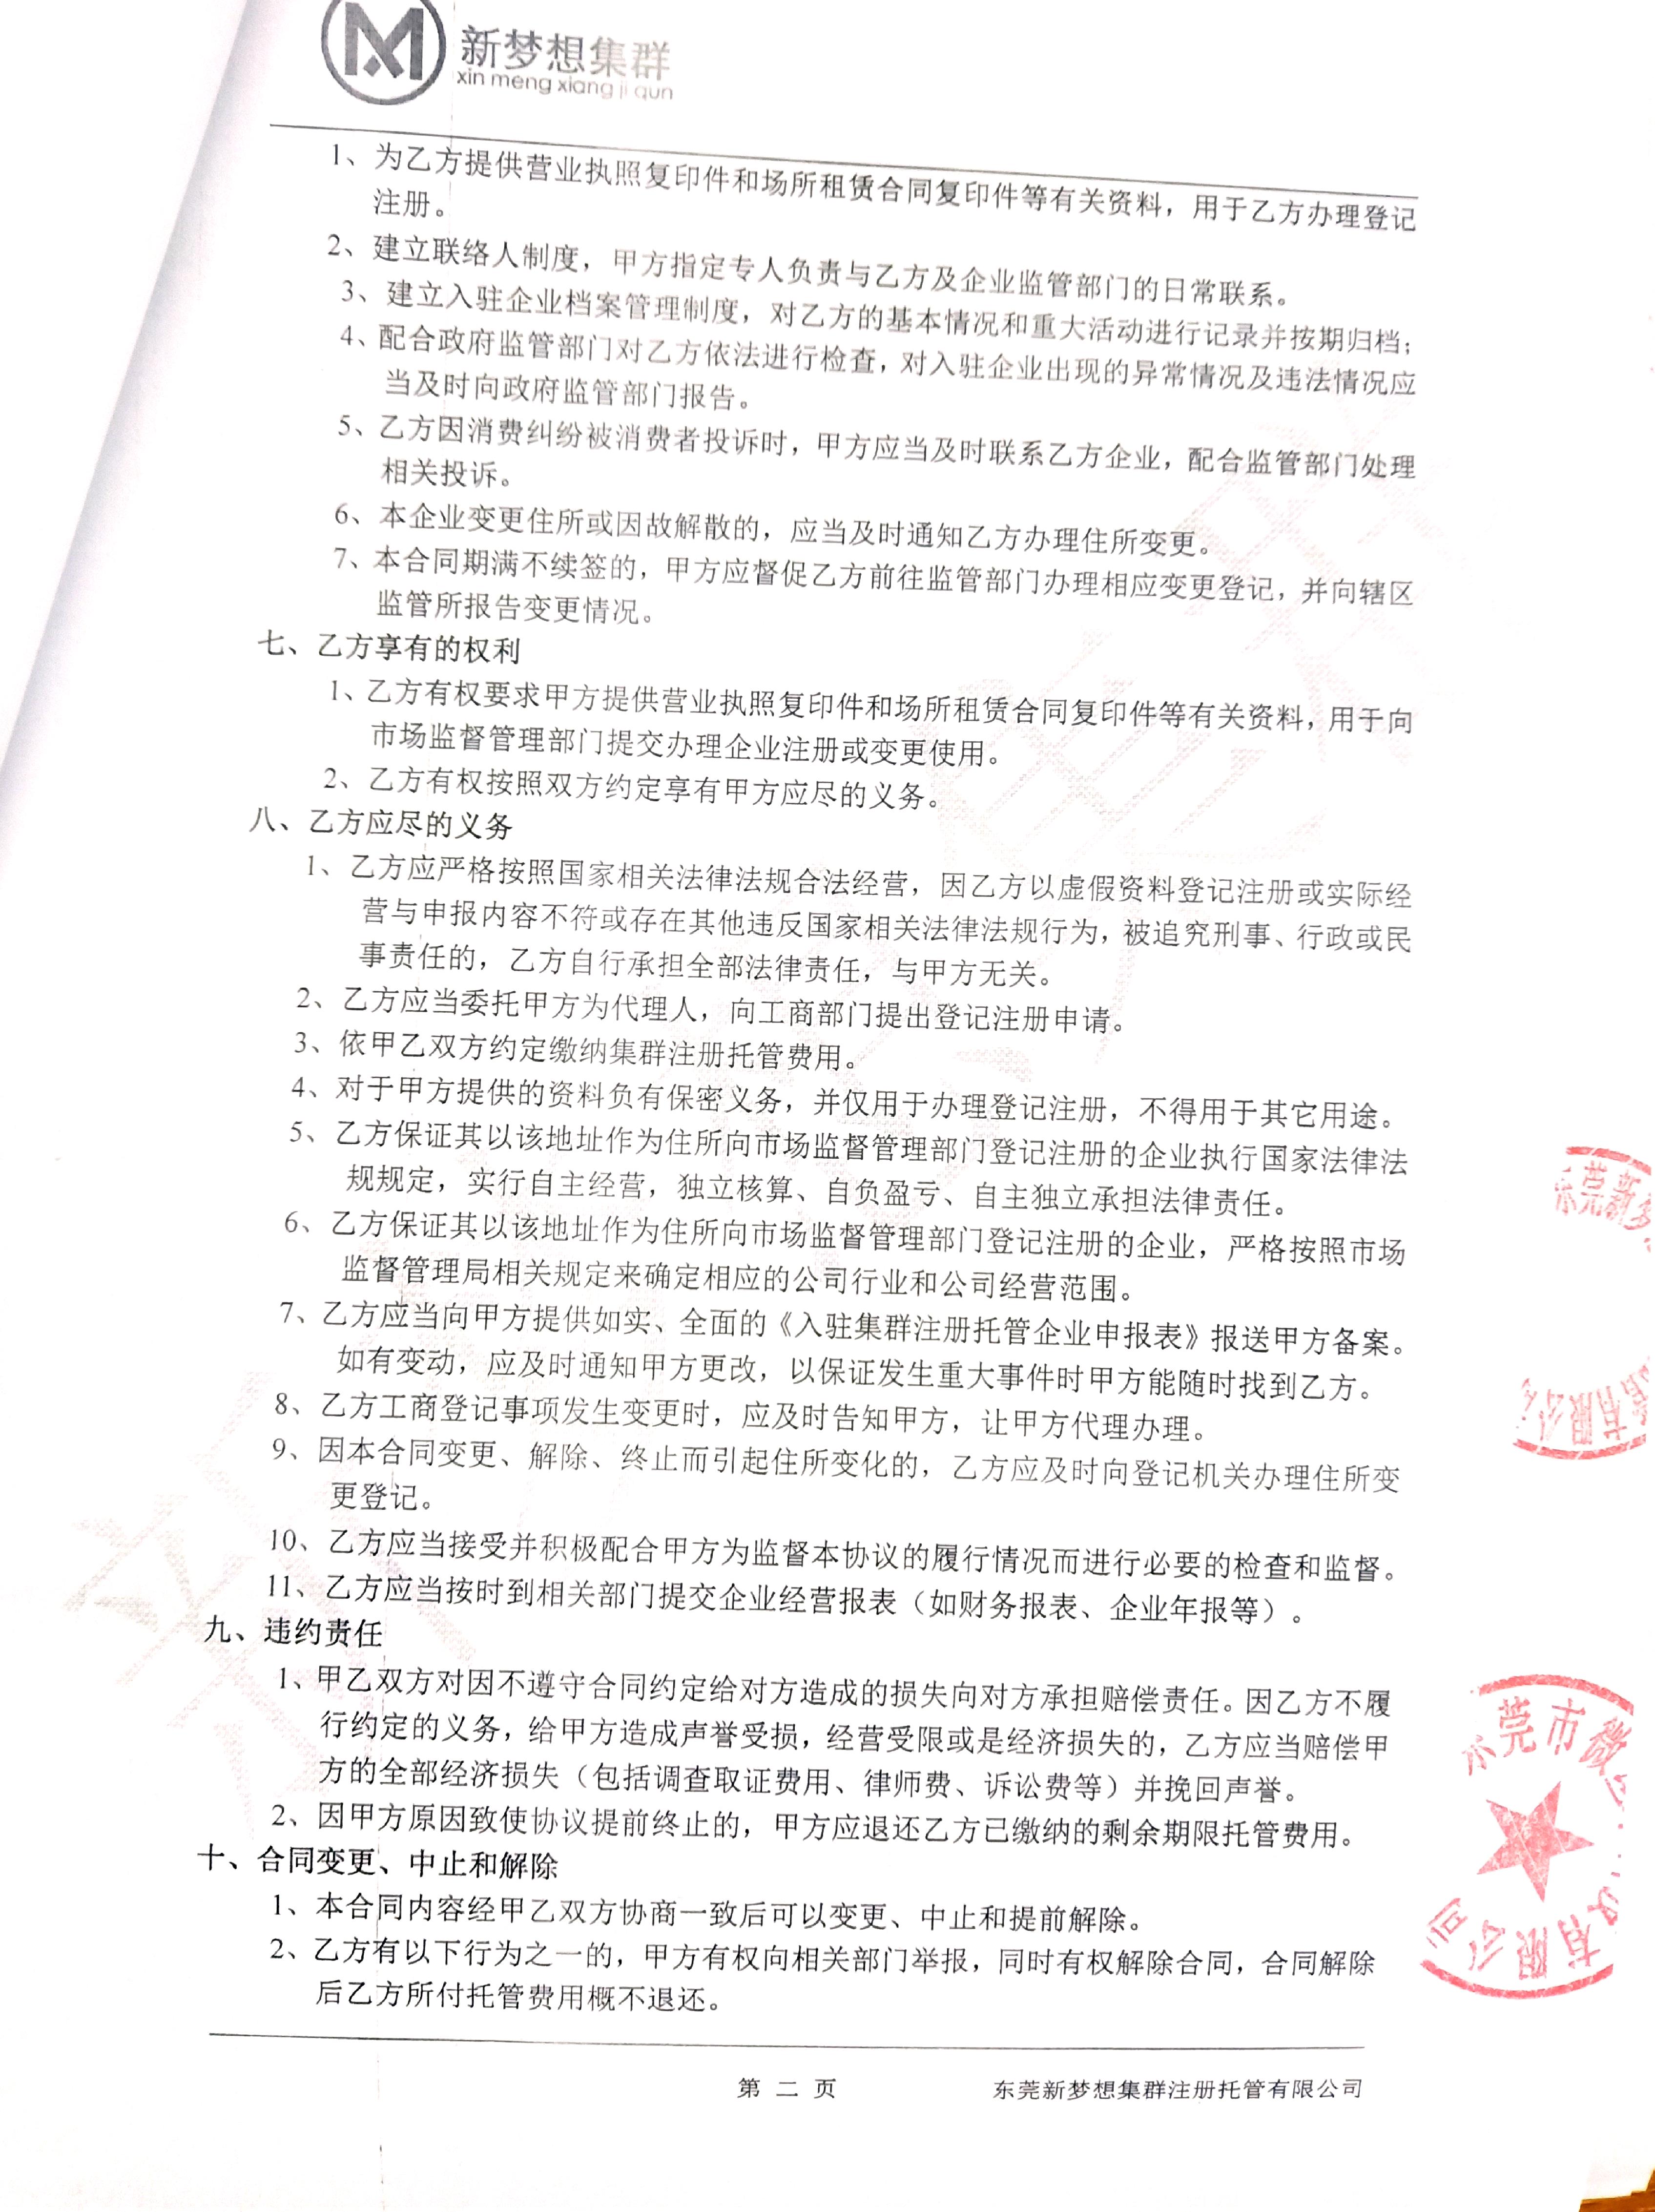 新梦想集群
xin meng xiang ji qun
1、为乙方提供营业执照复印件和场所租赁合同复印件等有关资料，用于乙方办理登记
注册。
2、建立联络人制度，甲方指定专人负责与乙方及企业监管部门的日常联系。
3、建立入驻企业档案管理制度，对乙方的基本情况和重大活动进行记录并按期归档；
4、配合政府监管部门对乙方依法进行检查，对入驻企业出现的异常情况及违法情况应
当及时向政府监管部门报告。
5、乙方因消费纠纷被消费者投诉时，甲方应当及时联系乙方企业，配合监管部门处理
相关投诉。
6、本企业变更住所或因故解散的，应当及时通知乙方办理住所变更。
7、本合同期满不续签的，甲方应督促乙方前往监管部门办理相应变更登记，并向辖区
监管所报告变更情况。
七、乙方享有的权利
1、乙方有权要求甲方提供营业执照复印件和场所租赁合同复印件等有关资料，用于向
市场监督管理部门提交办理企业注册或变更使用。
2、乙方有权按照双方约定享有甲方应尽的义务。
八、乙方应尽的义务
1、乙方应严格按照国家相关法律法规合法经营，因乙方以虚假资料登记注册或实际经
营与申报内容不符或存在其他违反国家相关法律法规行为，被追究刑事、行政或民
事责任的，乙方自行承担全部法律责任，与甲方无关。
2、乙方应当委托甲方为代理人，向工商部门提出登记注册申请。
3、依甲乙双方约定缴纳集群注册托管费用。
4、对于甲方提供的资料负有保密义务，并仅用于办理登记注册，不得用于其它用途。
5、乙方保证其以该地址作为住所向市场监督管理部门登记注册的企业执行国家法律法
规规定，实行自主经营，独立核算、自负盈亏、自主独立承担法律责任。
6、乙方保证其以该地址作为住所向市场监督管理部门登记注册的企业，严格按照市场
监督管理局相关规定来确定相应的公司行业和公司经营范围。
7、乙方应当向甲方提供如实、全面的《入驻集群注册托管企业申报表》报送甲方备案。
如有变动，应及时通知甲方更改，以保证发生重大事件时甲方能随时找到乙方。
8、乙方工商登记事项发生变更时，应及时告知甲方，让甲方代理办理。
9、因本合同变更、解除、终止而引起住所变化的，乙方应及时向登记机关办理住所变
更登记。
10、乙方应当接受并积极配合甲方为监督本协议的履行情况而进行必要的检查和监督。
11、乙方应当按时到相关部门提交企业经营报表（如财务报表、企业年报等）。
九、违约责任
1、甲乙双方对因不遵守合同约定给对方造成的损失向对方承担赔偿责任。因乙方不履
行约定的义务，给甲方造成声誉受损，经营受限或是经济损失的，乙方应当赔偿甲
方的全部经济损失（包括调查取证费用、律师费、诉讼费等）并挽回声誉。
2、因甲方原因致使协议提前终止的，甲方应退还乙方已缴纳的剩余期限托管费用。
十、合同变更、中止和解除
1、本合同内容经甲乙双方协商一致后可以变更、中止和提前解除。
2、乙方有以下行为之一的，甲方有权向相关部门举报，同时有权解除合同，合同解除
后乙方所付托管费用概不退还。
第 二 页 东莞新梦想集群注册托管有限公司
莞新
有限公
莞市微
有限公司